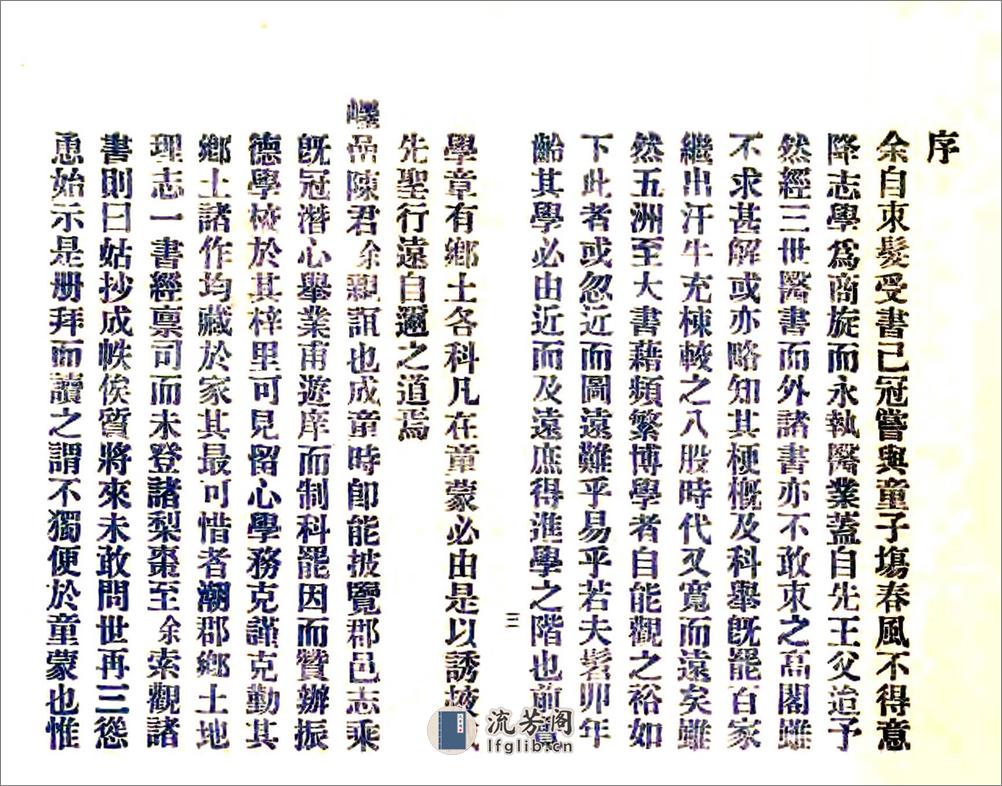 序
余自束髮受書已冠嘗與童子塲春風不得意
降志學爲商旋而永執醫業蓋自先王父迨予
然經三世醫書而外諸書亦不敢束之高閣雖
不求甚解或亦略知其梗概及科舉旣罷百家
繼出汗牛充棟較之八股時代又寬而遠矣雖
然五洲至大書藉頻繁博學者自能觀之裕如
下此者或忽近而圖遠難乎易乎若夫髫丱年
齡其學必由近而及遠庶得進學之階也前
三
學章有鄉土各科凡在童蒙必由是以誘掖
先聖行遠自邇之道焉
嶧嵒陳君余親誼也成童時卽能披覽郡邑志乘
旣冠潛心舉業甫遊庠而制科罷因而贊辦振
德學校於其梓里可見留心學務克謹克勤其
鄉土諸作均藏於家其最可惜者潮郡鄉土地
理志一書經禀司而未登諸梨棗至余索觀諸
書則曰姑抄成帙俟質將來未敢問世再三慫
恿始示是册拜而讀之謂不獨便於童蒙也惟
流芳阁
lfglib.cn